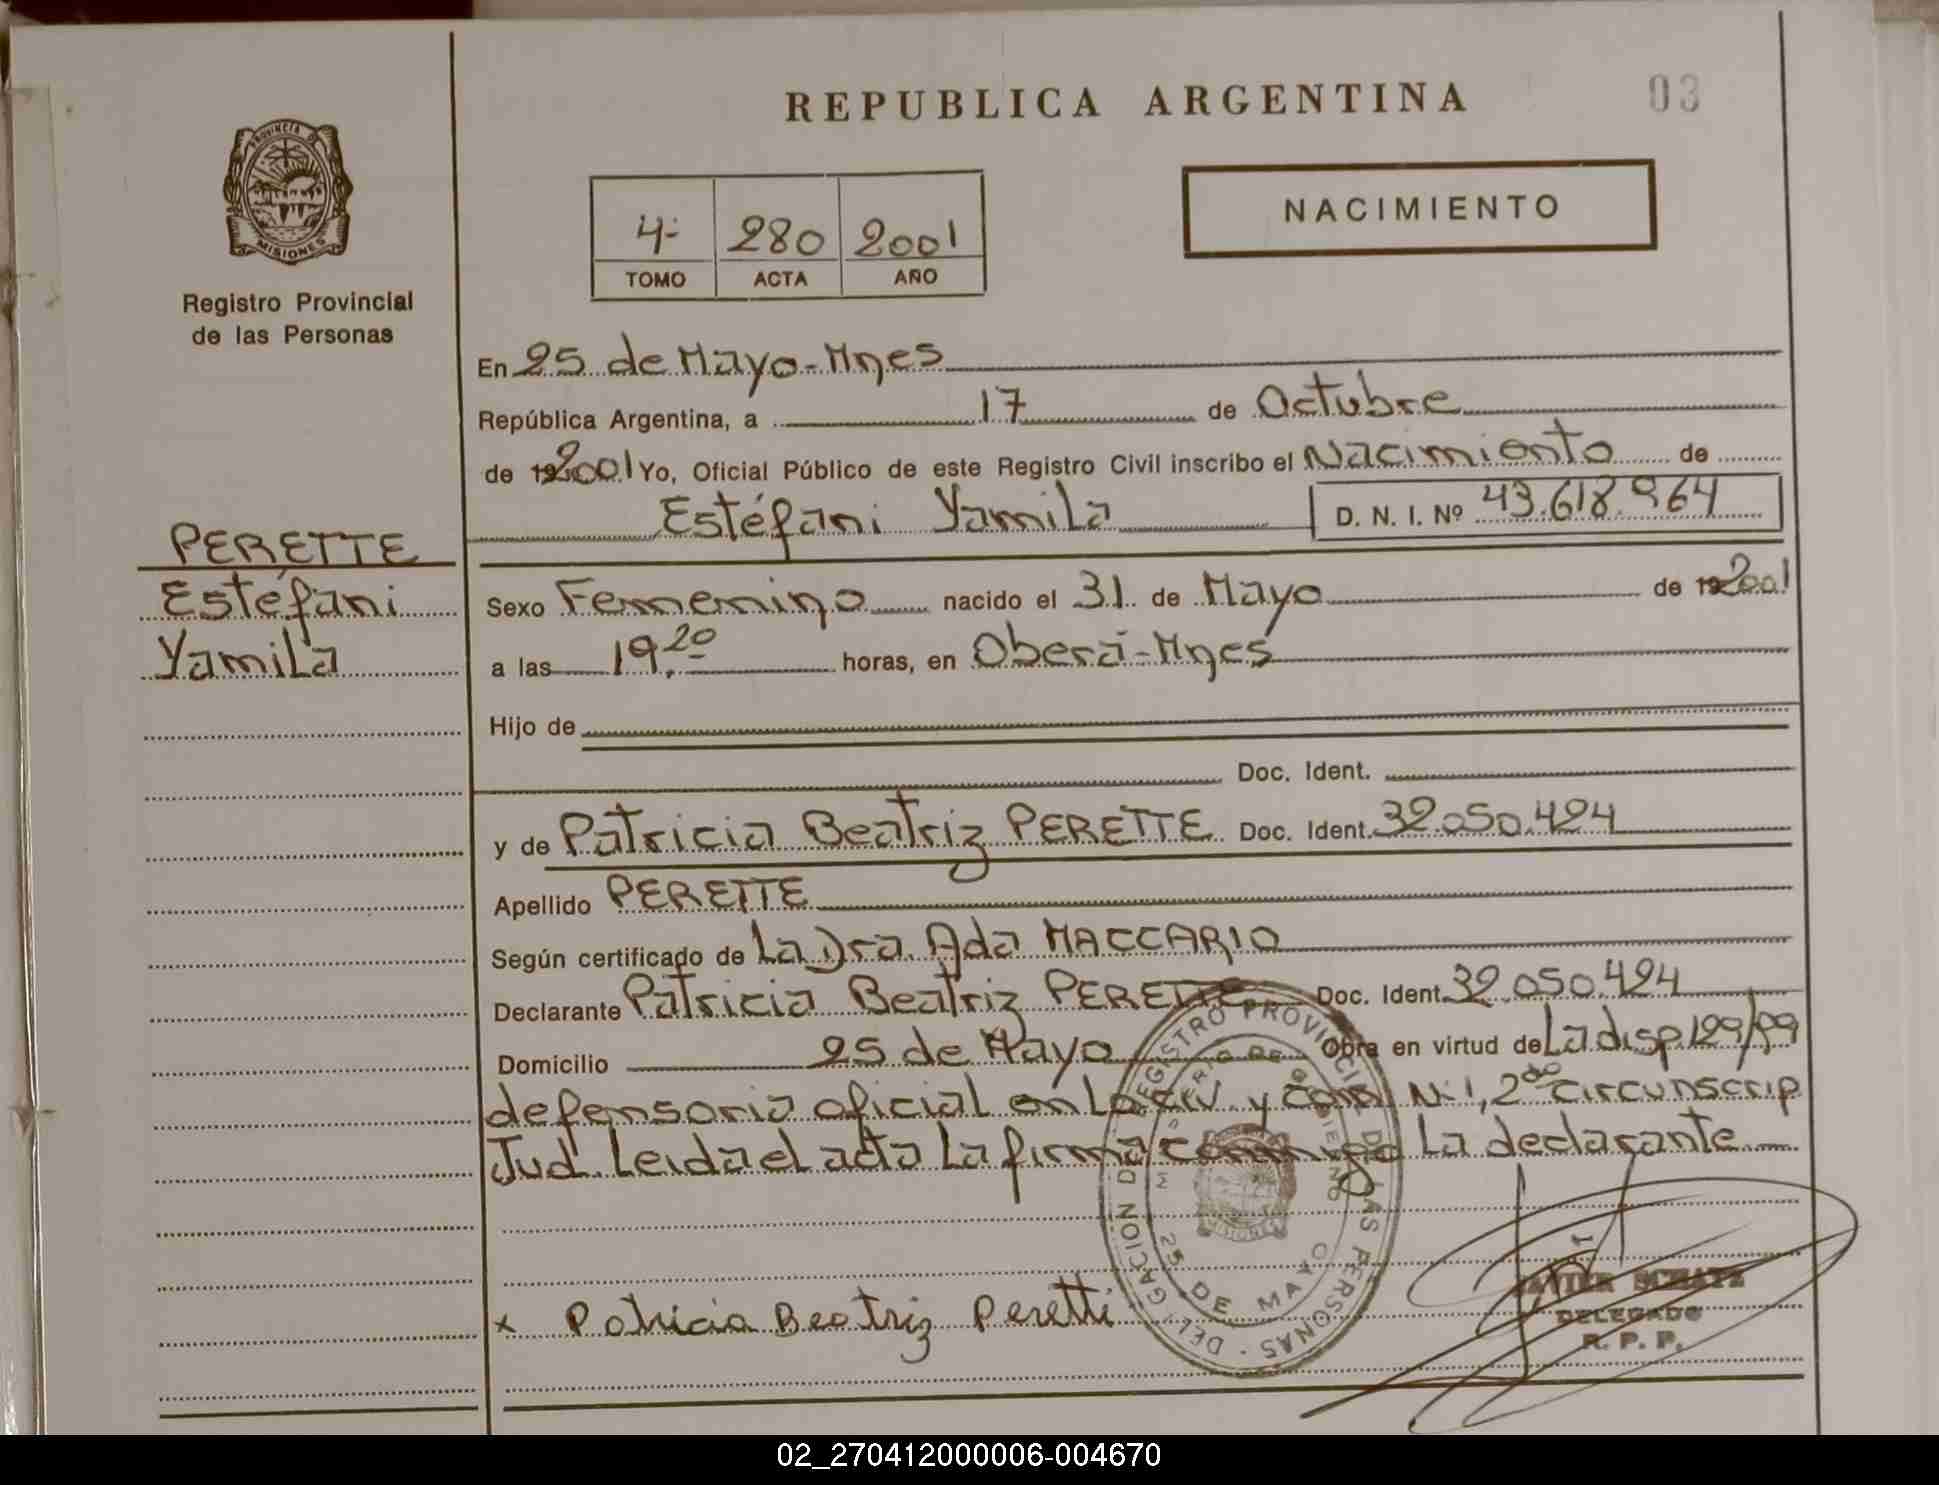 REPUBLICA ARGENTINA
03
PROVINCIA DE MISIONES
Registro Provincial
de las Personas
4- 280 2001
TOMO ACTA AÑO
NACIMIENTO
PERETTE
Estéfani
Yamila
En 25 de Mayo-Mnes
República Argentina, a 17 de Octubre
de 192001 Yo, Oficial Público de este Registro Civil inscribo el Nacimiento de
Estéfani Yamila D. N. I. Nº 43.618.964
Sexo Fememino nacido el 31 de Mayo de 192001
a las 19.20 horas, en Oberá-Mnes
Hijo de
Doc. Ident.
y de Patricia Beatriz PERETTE Doc. Ident. 32.050.494
Apellido PERETTE
Según certificado de La Dra. Ada MACCARIO
Declarante Patricia Beatriz PERETTE Doc. Ident. 32.050.494
Domicilio 25 de Mayo Obra en virtud de La disp 129/99
defensoria oficial en lo civ. y com N.1, 2do circunscrip
Jud. Leida el acta La firma conmigo La declarante
x Patricia Beatriz Peretti
DELEGACION DEL REGISTRO PROVINCIAL DE LAS PERSONAS
MINISTERIO DE GOBIERNO
MISIONES
25 DE MAYO
JAVIER
DELEGADO
R. P. P.
02_270412000006-004670